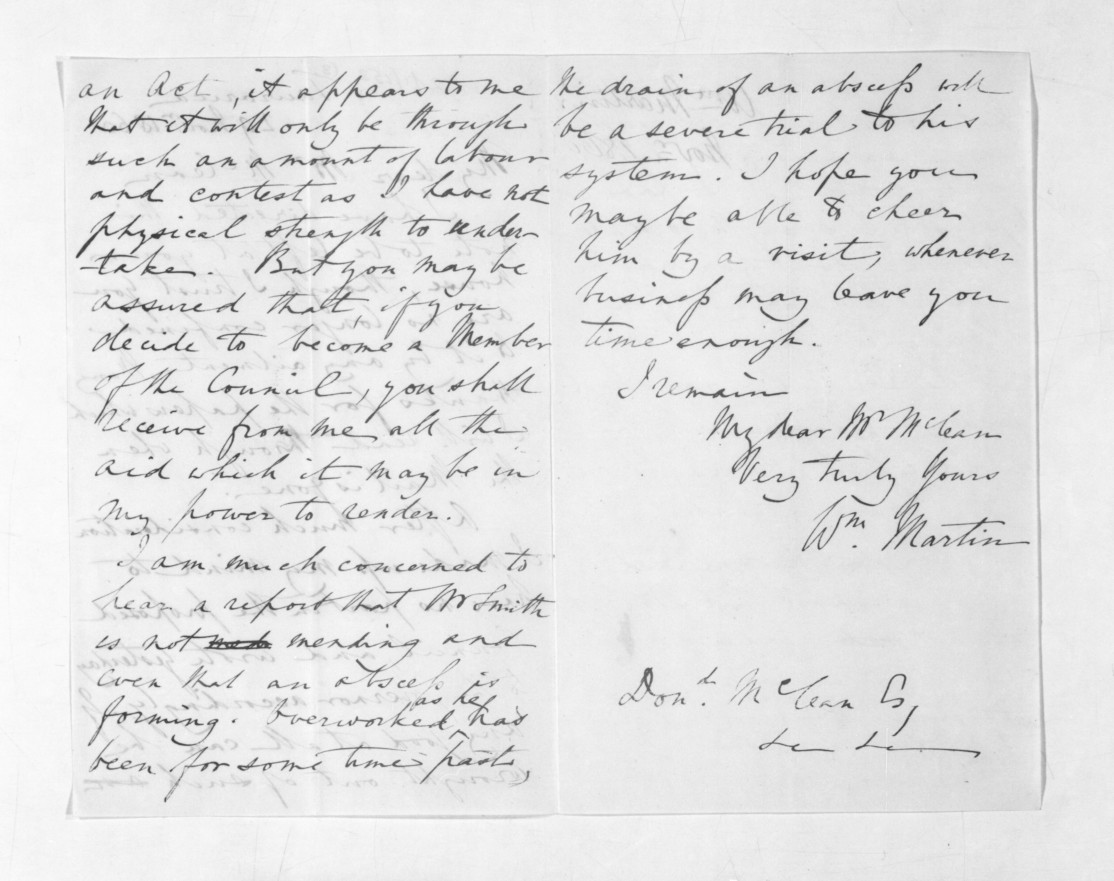 an Act, it appears to me
that it will only be through
such an amount of labour
and contest as I have not
physical strength to under-
-take. But you may be
assured that, if you
decide to become a Member
of the Council, you shall
receive from me all the
aid which it may be in
my power to render.
I am much concerned to
hear a report that Mr Smith
is not mending and
even that an abscess is
forming. Overworked as he has
been for some time past,
the drain of an abscess will
be a severe trial to his
system. I hope you
may be able to cheer
him by a visit, whenever
business may leave you
time enough.
I remain
My dear Mr McLean
Very truly Yours
Wm. Martin
Dond. McLean Esq,